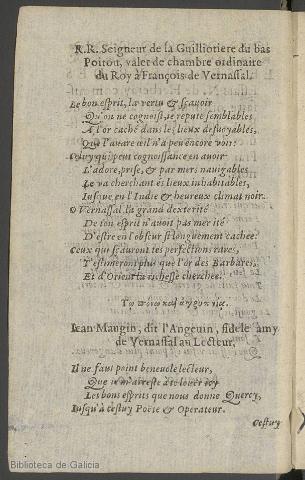 R.R. Seigneur de la Guilliotiere du bas
Poitou, valet de chambre ordinaire
du Roy à François de Vernassal.
Le bon esprit, la vertu & sçavoir
Qu'on ne cognoist, ie repute semblables
A l'or caché dans les lieux desuoyables,
Que l'auare œil n'a peu encore voir:
Celuy qui peut cognoissance en auoir
L'adore, prise, & par mers nauigables
Le va cherchant es lieux inhabitables,
Iusque en l'Indie & heureux climat noir.
O Vernassal la grand dexterité
De ton esprit n'auoit pas merité
D'estre en l'obscur si longuement cachee:
Ceux qui sçauront tes perfections rares,
T'estimeront plus que l'or des Barbares,
Et d'Orient la richesse cherchee.
Iean Maugin, dit l'Angeuin, fidele amy
de Vernassal au Lecteur.
Il ne faut point beneuole lecteur,
Que ie m'arreste à te louer icy
Les bons esprits que nous donne Quercy,
Iusqu'à cestuy Poëte & Operateur.
Cestuy
Biblioteca de Galicia